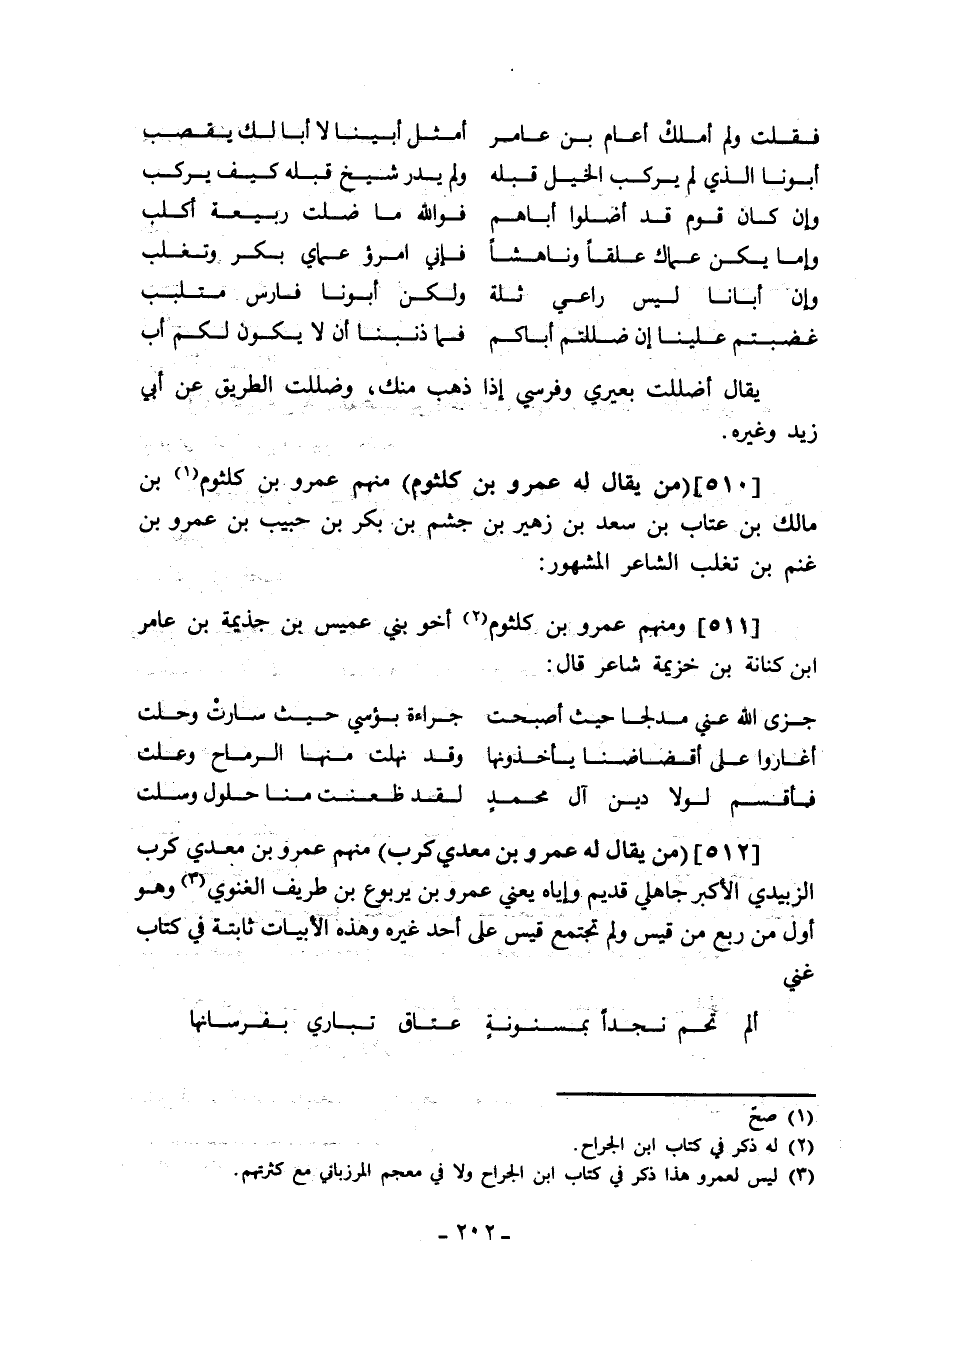 فقلت ولم أملكْ أعام بن عامر أمثل أبينا لا أبا لك يقصب
أبونا الذي لم يركب الخيل قبله ولم يدر شيخ قبله كيف يركب
وإن كان قوم قد أضلوا أباهم فوالله ما ضلت ربيعة أكلب
وإما يكن عماك علقاً وناهشاً فإني امرؤ عماي بكر وتغلب
وإن أبانا ليس راعي ثلة ولكن أبونا فارس متلبب
غضبتم علينا إن ضللتم أباكم فما ذنبنا أن لا يكون لكم أب
يقال أضللت بعيري وفرسي إذا ذهب منك، وضللت الطريق عن أبي
زيد وغيره.
[٥١٠](من يقال له عمرو بن كلثوم) منهم عمرو بن كلثوم(١) بن
مالك بن عتاب بن سعد بن زهير بن جشم بن بكر بن حبيب بن عمرو بن
غنم بن تغلب الشاعر المشهور:
[٥١١] ومنهم عمرو بن كلثوم(٢) أخو بني عميس بن جذيمة بن عامر
ابن كنانة بن خزيمة شاعر قال:
جزى الله عني مدلجا حيث أصبحت جراءة بؤسي حيث سارتْ وحلت
أغاروا على أقضاضنا يأخذونها وقد نهلت منها الرماح وعلت
فأقسم لولا دين آل محمدٍ لقد ظعنت منا حلول وسلت
[٥١٢] (من يقال له عمرو بن معدي كرب) منهم عمرو بن معدي كرب
الزبيدي الأكبر جاهلي قديم وإياه يعني عمرو بن يربوع بن طريف الغنوي(٣) وهو
أول من ربع من قيس ولم تجتمع قيس على أحد غيره وهذه الأبيات ثابتة في كتاب
غني
ألم تحم نجداً بمسنونةٍ عتاق تباري بفرسانها
(١) صحّ
(٢) له ذكر في كتاب ابن الجراح.
(٣) ليس لعمرو هذا ذكر في كتاب ابن الجراح ولا في معجم المرزباني مع كثرتهم.
- ٢٠٢ -